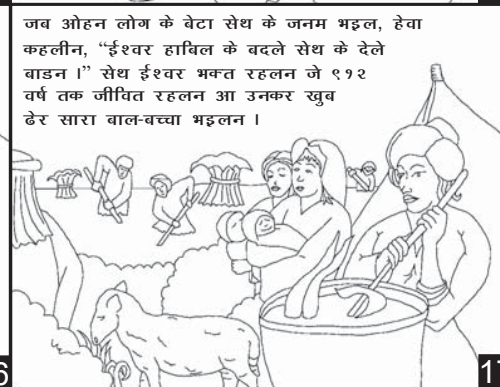 जब ओहन लोग के बेटा सेथ के जनम भइल, हेवा
कहलीन, “ईश्वर हाबिल के बदले सेथ के देले
बाडन ।” सेथ ईश्वर भक्त रहलन जे ९१२
वर्ष तक जीवित रहलन आ उनकर खुब
ढेर सारा बाल-बच्चा भइलन ।